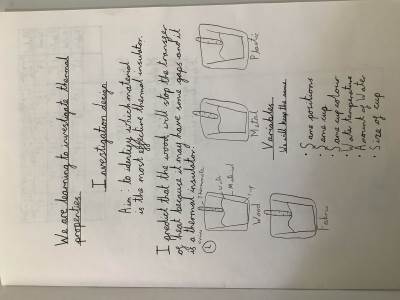 We are learning to investigate thermal
properties.
Investigation design
Aim: to identity which material
is the most effective thermal insulator.
I predict that the wood will stop the transger
of heat because it may have some gaps and it
is a thermal insulator.
Wood
Metal
Plastic
Fabric
Variables
We will keep the same
• Same positions
• Same cup
• Same cup colour
• Water temperature
• Amount of Water
• Size of cup